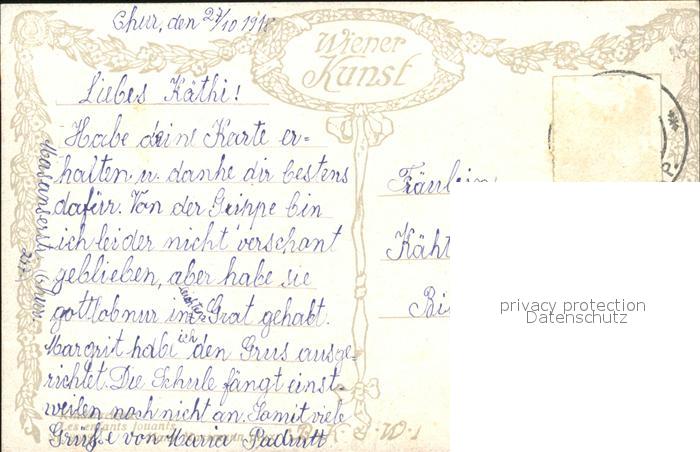 Chur, den 27/10 1918
Wiener
Kunst
Liebes Käthi!
Habe deine Karte er=
halten u. danke dir bestens
dafür. Von der Grippe bin
ich leider nicht verschont
geblieben, aber habe sie
gottlob nur im leichten Grat gehabt.
Margrit habe ich den Grus ausge-
richtet. Die Schule fängt einst-
weilen noch nicht an. Somit viele
Grüsse von Maria Padrutt
Les enfants jouants
Masanserstr. Chur
Fräulein
Käht
Bi
privacy protection
Datenschutz